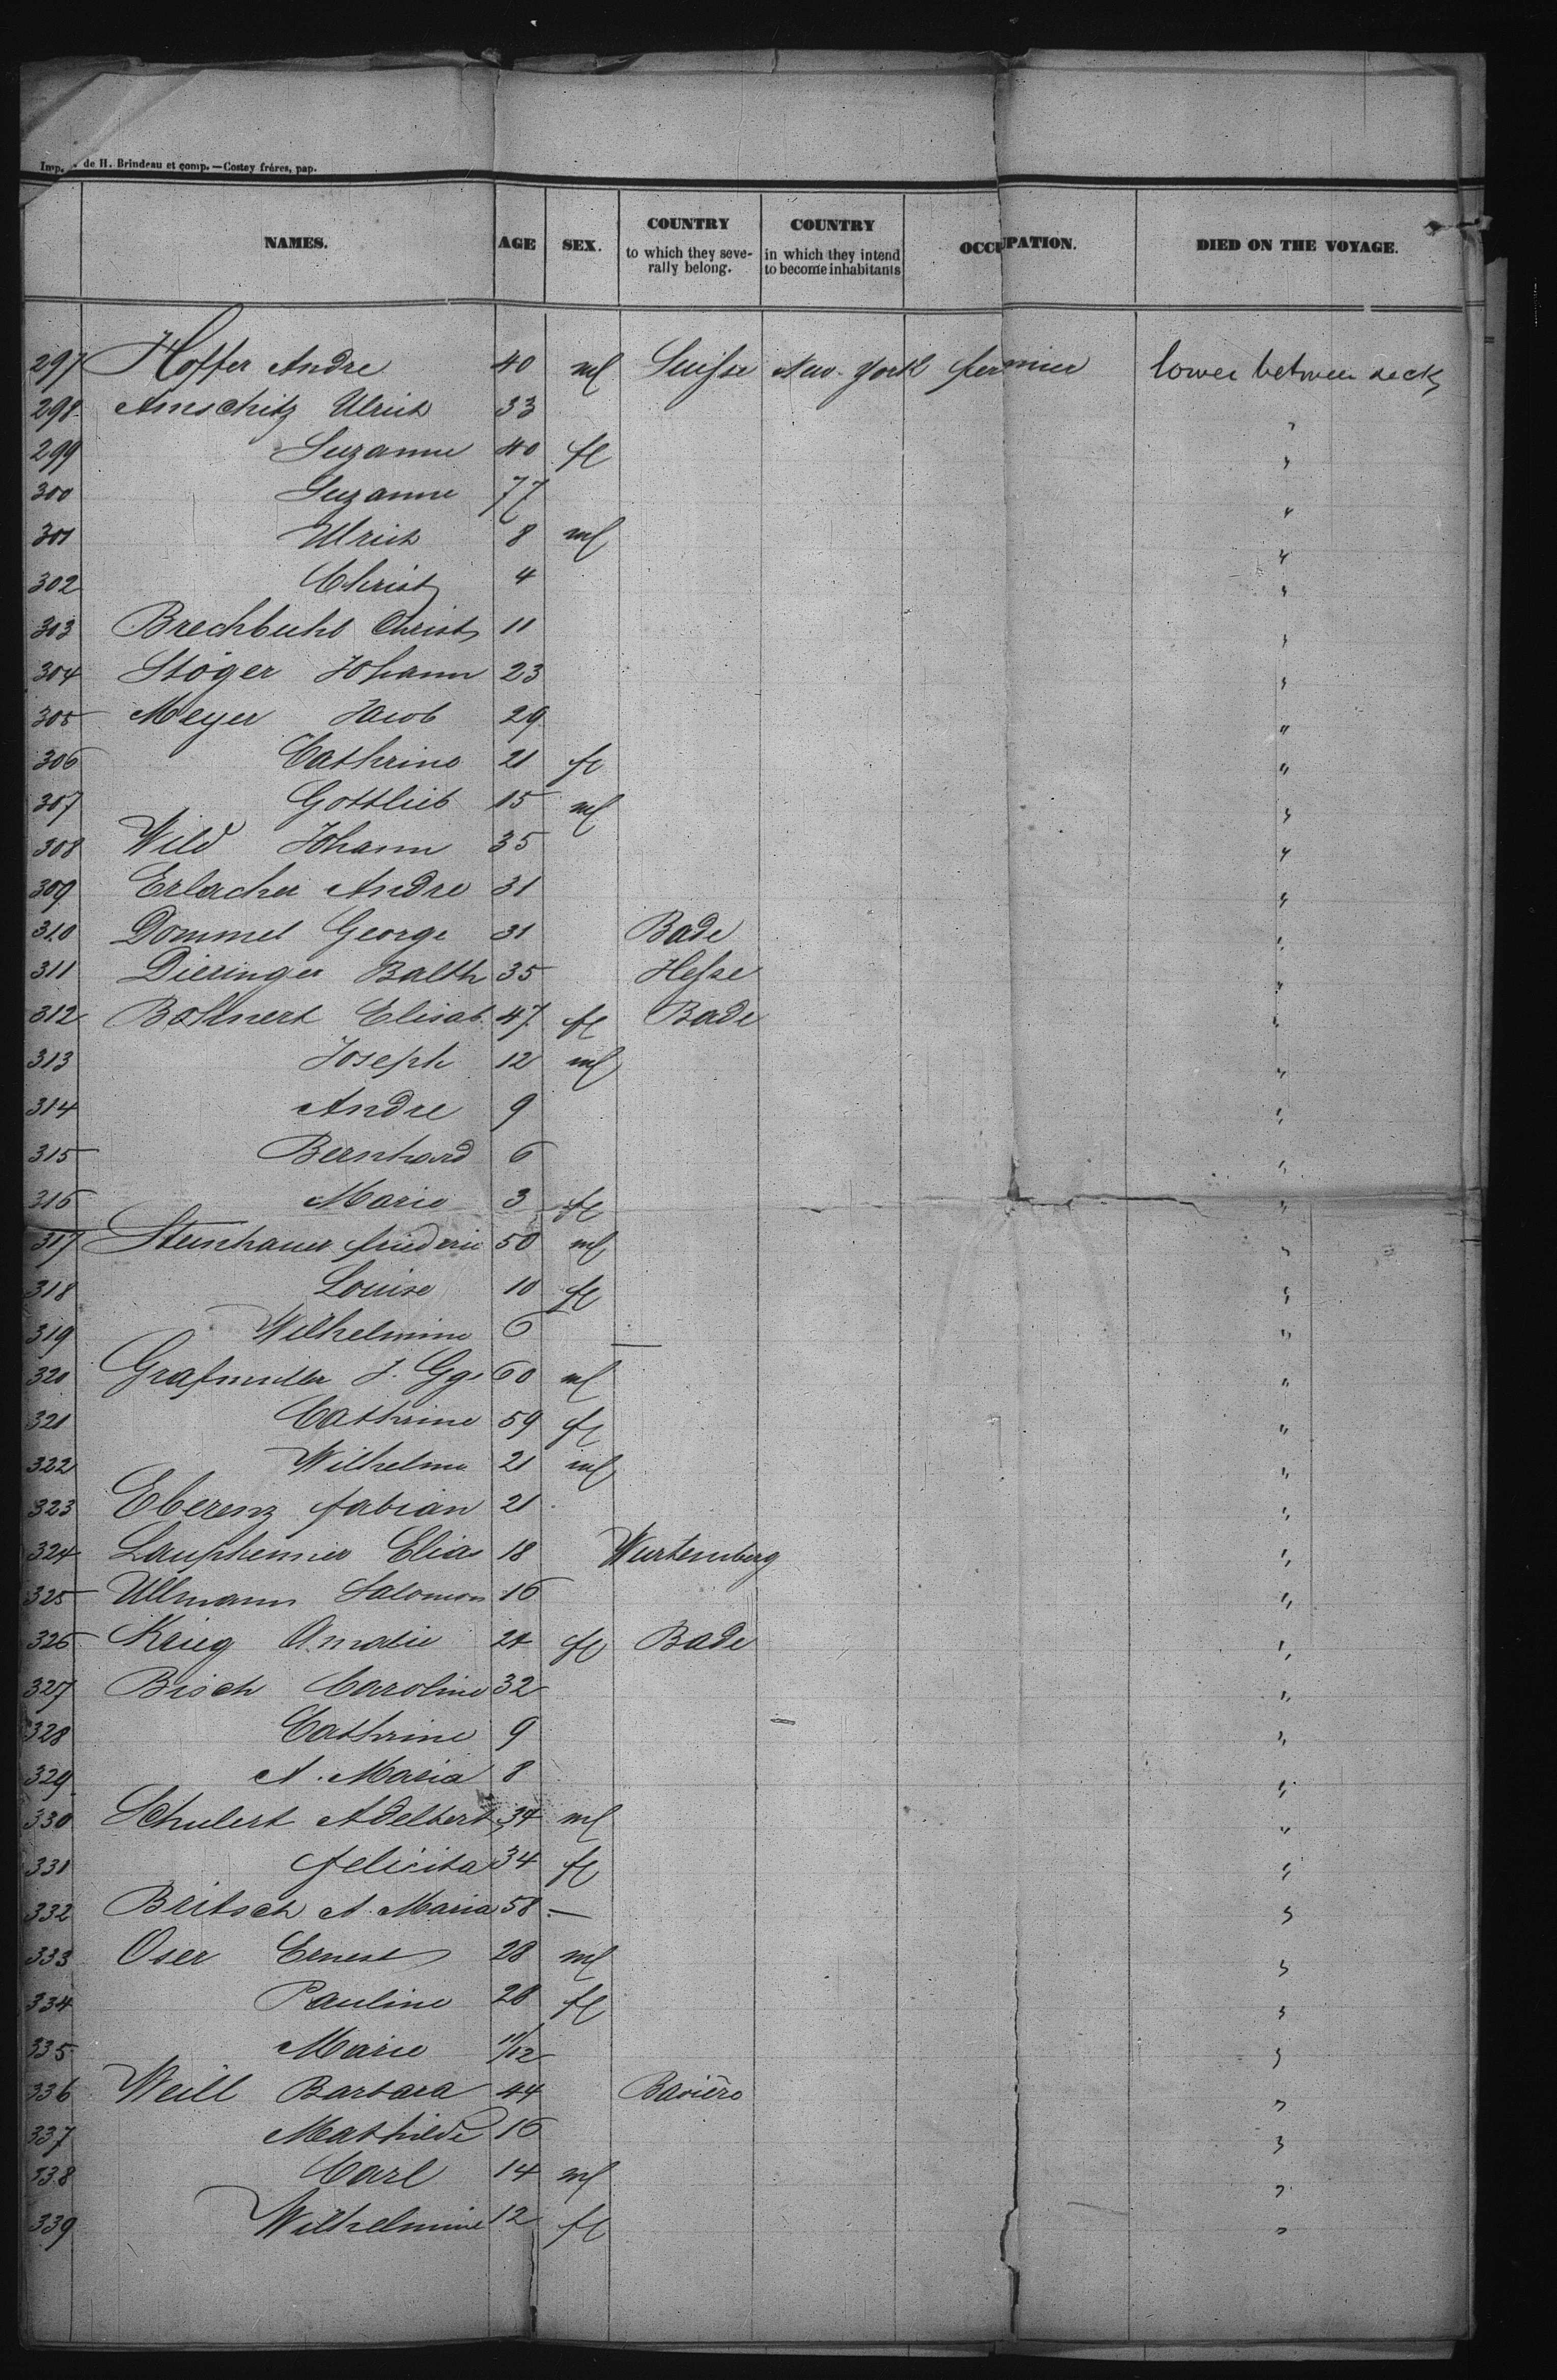 de H. Brindeau et comp. — Costey fréres, pap.
NAMES. AGE SEX. COUNTRY to which they seve-rally belong. COUNTRY in which they intend to become inhabitants OCCUPATION. DIED ON THE VOYAGE.
297 Hoffer Andre 40 ml Suisse New-York fermier lower between deck
298 Amschitz Ulrich 33 "
299 Suzanne 40 fl "
300 Suzanne 77 "
301 Ulrich 8 ml "
302 Christ 4 "
303 Brechbuhl Christ 11 "
304 Stoger Johann 23 "
305 Meyer Jacob 29 "
306 Cathrine 21 fl "
307 Gottlieb 15 ml "
308 Wild Johann 35 "
309 Erlacher Andre 31 "
310 Dommel George 31 Bade "
311 Dieringer Balth 35 Hesse "
312 Bohnert Elisab. 47 fl Bade "
313 Joseph 12 ml "
314 Andre 9 "
315 Bernhard 6 "
316 Marie 3 fl "
317 Steinhauer friederic 50 ml "
318 Louise 10 fl "
319 Wilhelmine 6 "
320 Grafmuller J. Gge 60 ml "
321 Cathrine 59 fl "
322 Wilhelm 21 ml "
323 Eberenz fabian 21 "
324 Laupheimer Elias 18 Wurtemberg "
325 Ullmann Salomon 16 "
326 Krieg Amalie 24 fl Bade "
327 Bisch Caroline 32 "
328 Cathrine 9 "
329 A. Maria 8 "
330 Schulert Adelbert 34 ml "
331 felicita 34 fl "
332 Britsch A. Maria 58 — "
333 Oser Ernest 28 ml "
334 Pauline 28 fl "
335 Marie 11/12 "
336 Weill Barbara 44 Bavière "
337 Mathilde 16 "
338 Carl 14 ml "
339 Wilhelmine 12 fl "